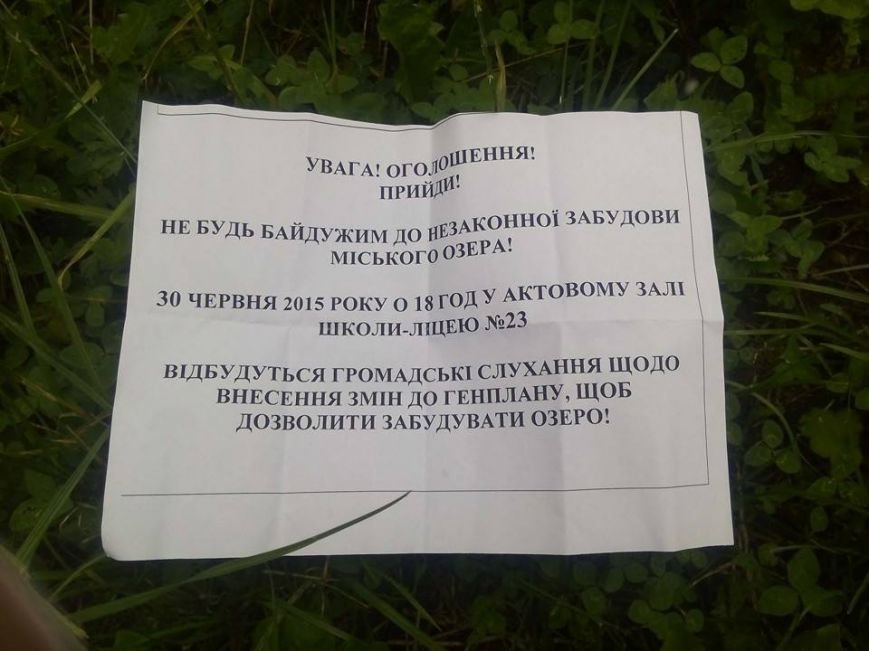 УВАГА! ОГОЛОШЕННЯ!
ПРИЙДИ!
НЕ БУДЬ БАЙДУЖИМ ДО НЕЗАКОННОЇ ЗАБУДОВИ
МІСЬКОГО ОЗЕРА!
30 ЧЕРВНЯ 2015 РОКУ О 18 ГОД У АКТОВОМУ ЗАЛІ
ШКОЛИ-ЛІЦЕЮ №23
ВІДБУДУТЬСЯ ГРОМАДСЬКІ СЛУХАННЯ ЩОДО
ВНЕСЕННЯ ЗМІН ДО ГЕНПЛАНУ, ЩОБ
ДОЗВОЛИТИ ЗАБУДУВАТИ ОЗЕРО!